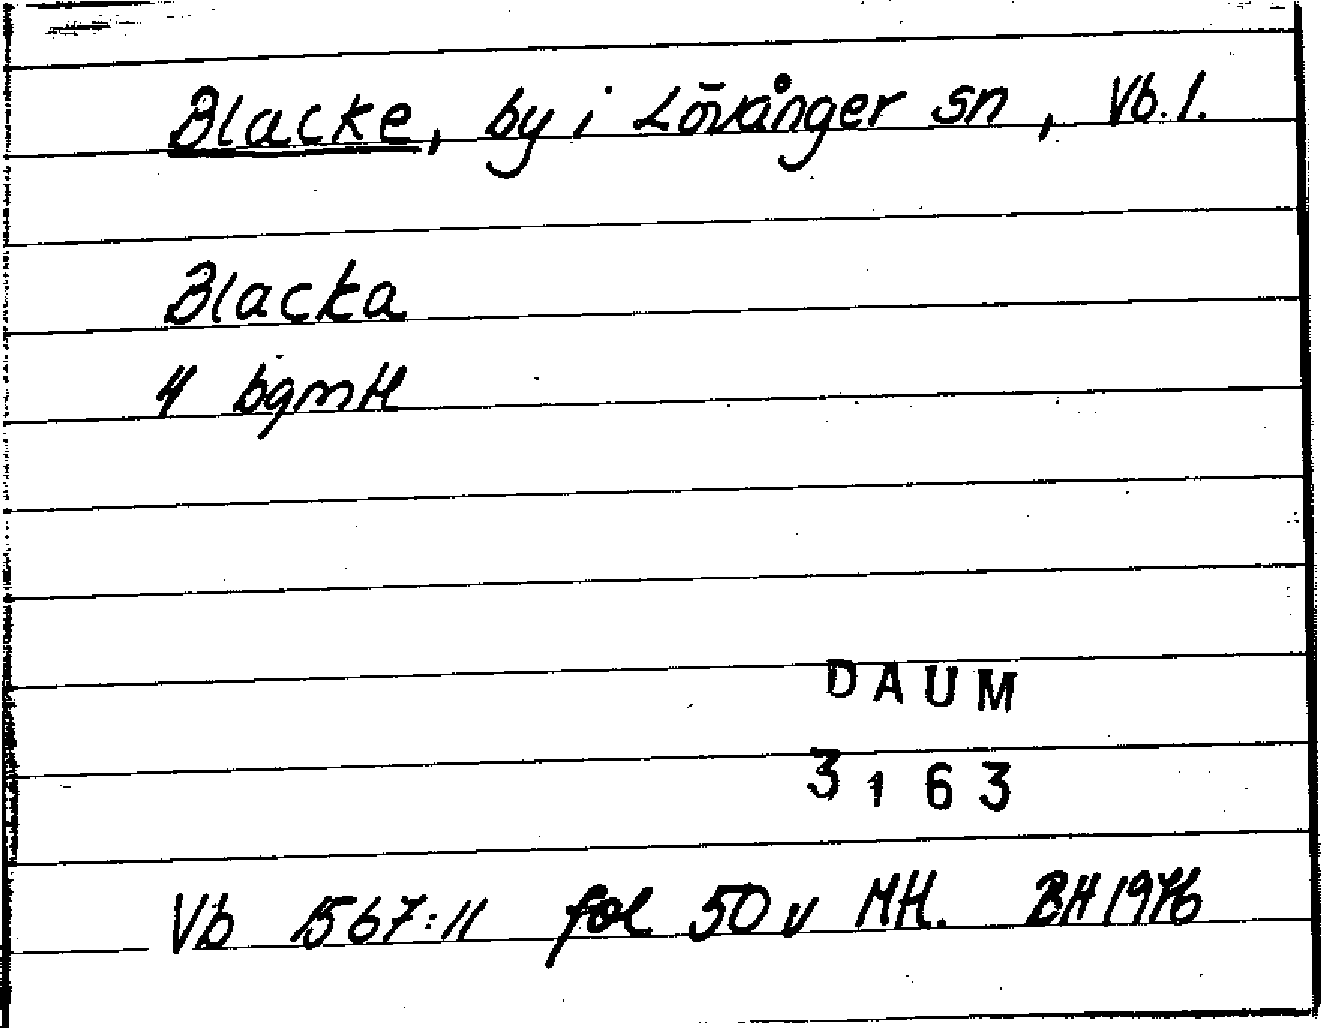 Blacke, by i Lövånger sn, Vb. l.
Blacka
4 bgmtl
DAUM
3163
Vb 1567:11 fol 50 v MH. BH 1976